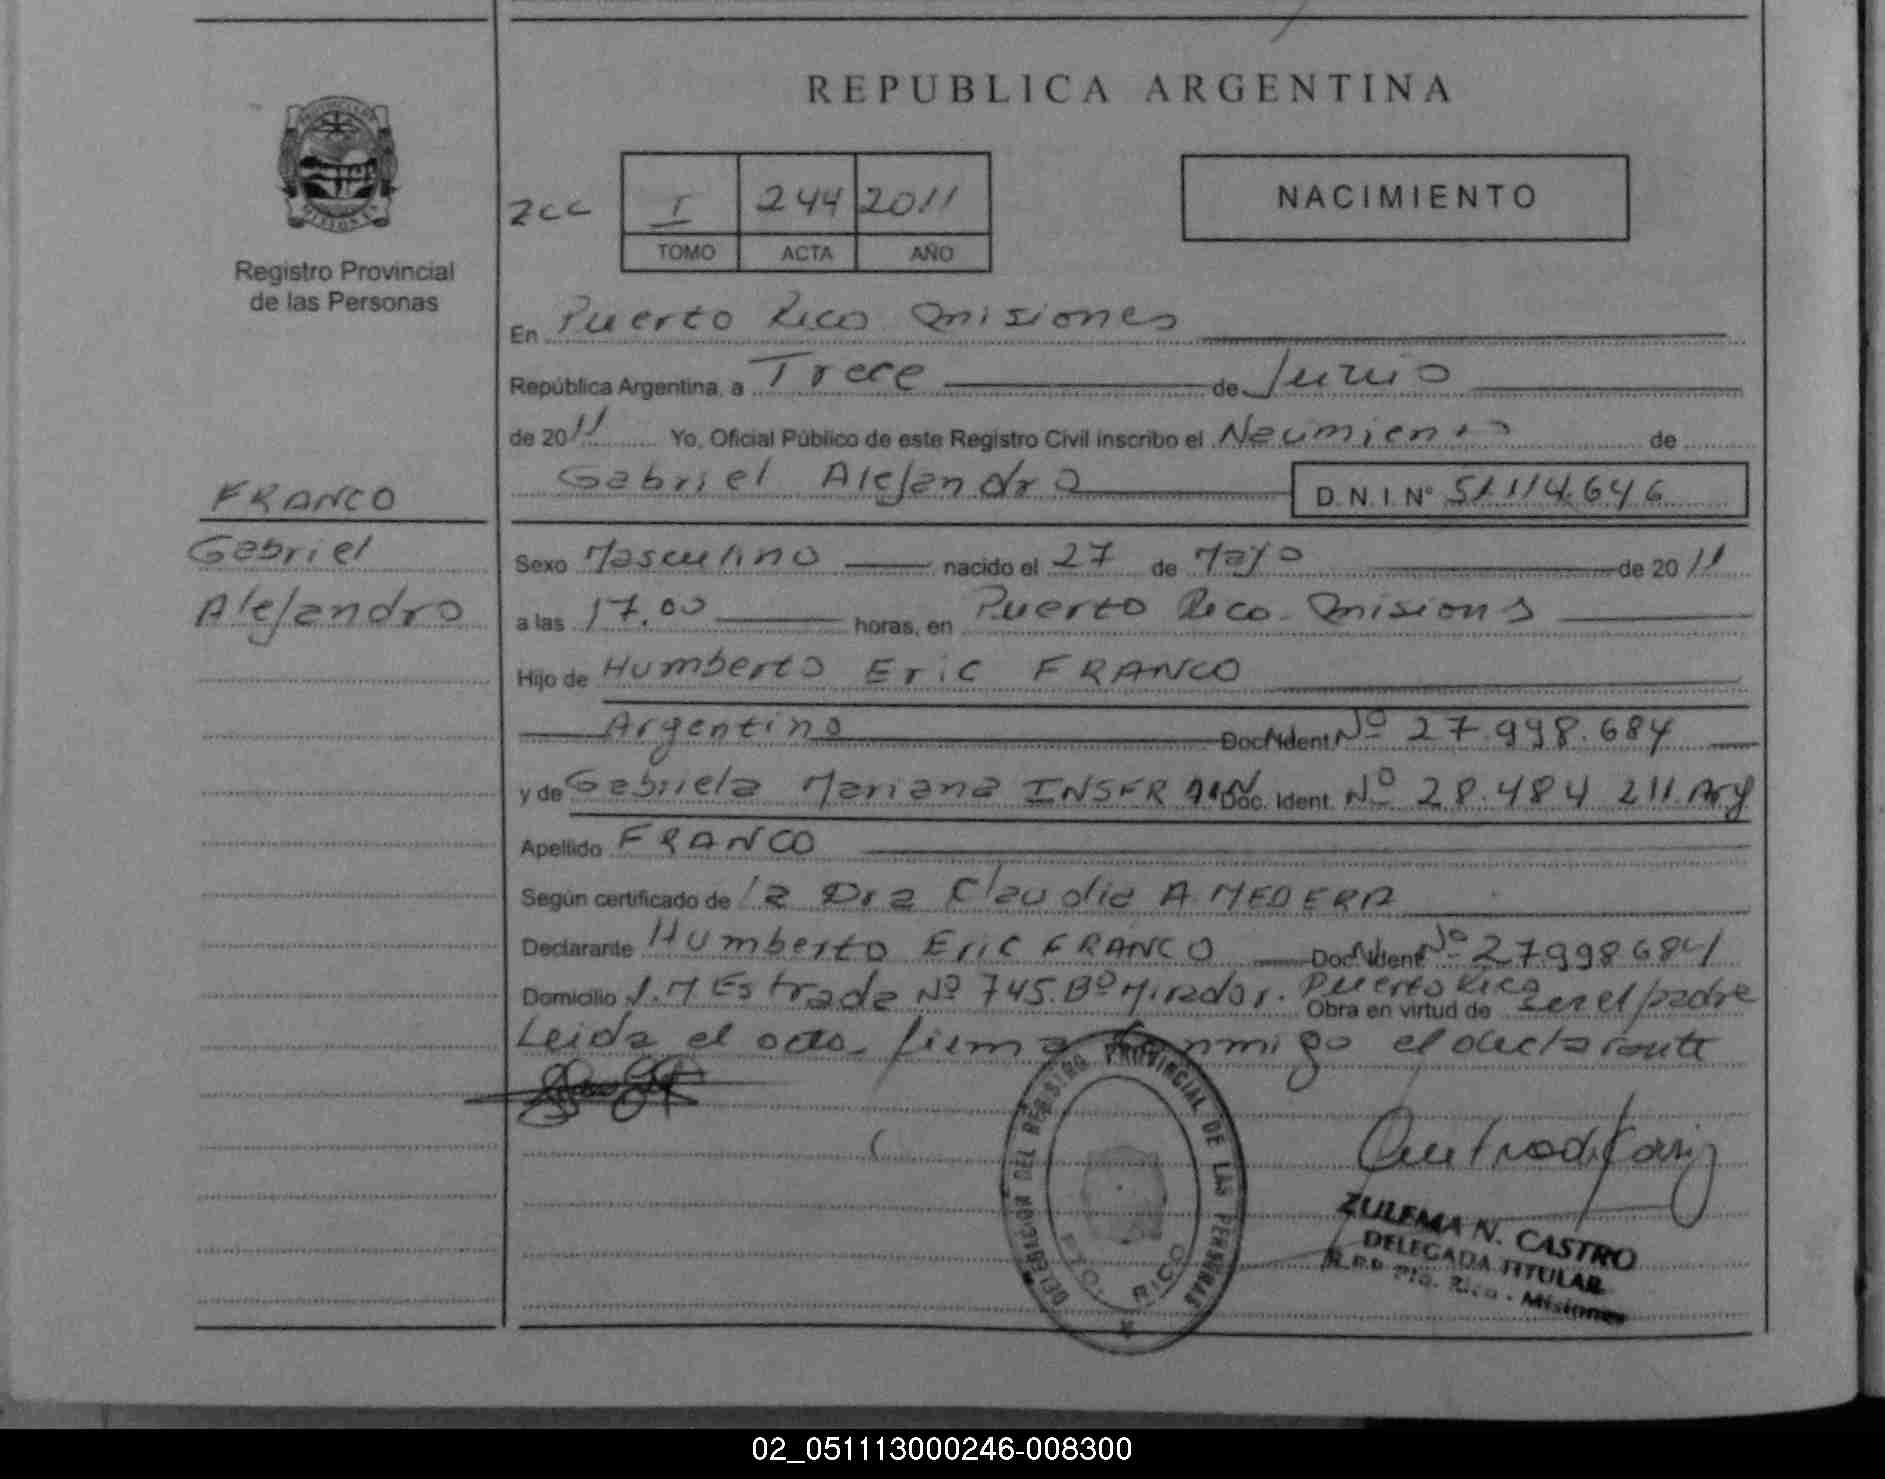 REPUBLICA ARGENTINA
2cc
I 244 2011
TOMO ACTA AÑO
NACIMIENTO
Registro Provincial
de las Personas
En Puerto Rico Misiones
República Argentina, a Trece de Junio
de 2011 Yo, Oficial Público de este Registro Civil inscribo el Nacimiento de
Gabriel Alejandro D.N.I. Nº 51.114.646
FRANCO
Gabriel
Alejandro
Sexo Masculino nacido el 27 de Mayo de 2011
a las 17.00 horas, en Puerto Rico Misiones
Hijo de Humberto Eric FRANCO
Argentino Doc. Ident. Nº 27.998.684
y de Gabriela Mariana INSFRAN Doc. Ident. Nº 28.484 211. Arg
Apellido FRANCO
Según certificado de la Dra Claudia A. MEDERA
Declarante Humberto Eric FRANCO Doc. Ident. Nº 27998684
Domicilio J.M Estrada Nº 745. Bº Mirador. Puerto Rico Obra en virtud de ser el padre
Leida el acta firma conmigo el declarante
DELEGACION DEL REGISTRO PROVINCIAL DE LAS PERSONAS
PTO. RICO
ZULEMA N. CASTRO
DELEGADA TITULAR
R.P.P. Pto. Rico - Misiones
02_051113000246-008300